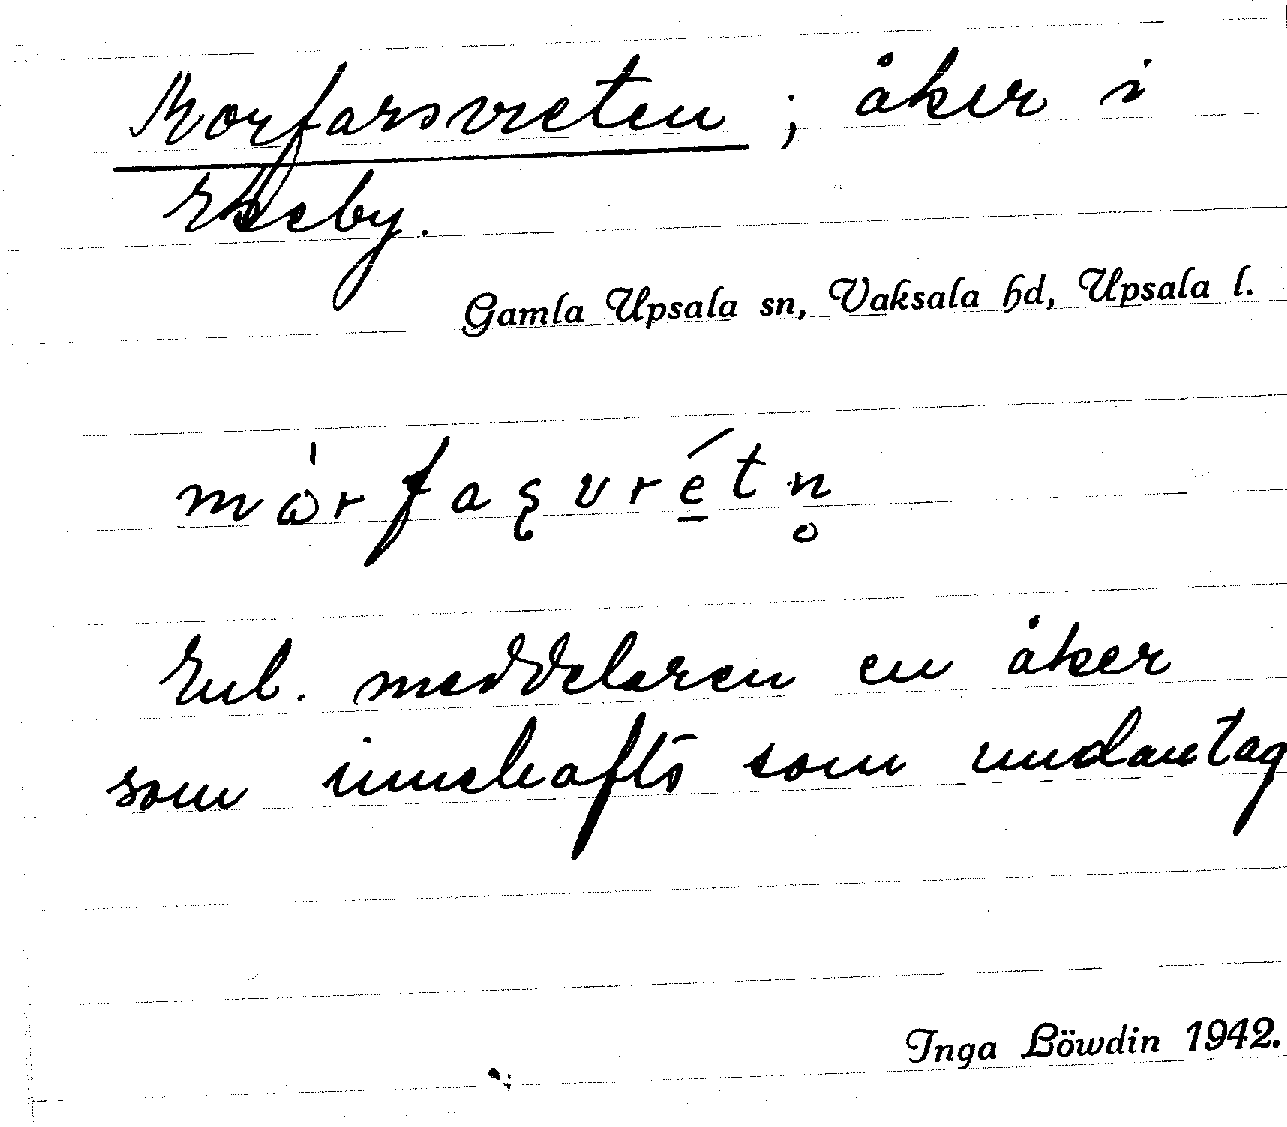 Morfarsvreten ; åker i
Ekeby.
Gamla Upsala sn, Vaksala hd, Upsala l.
mòrfaʂvrétn̥
Enl. meddelaren en åker
som innehafts som undantag
Inga Löwdin 1942.